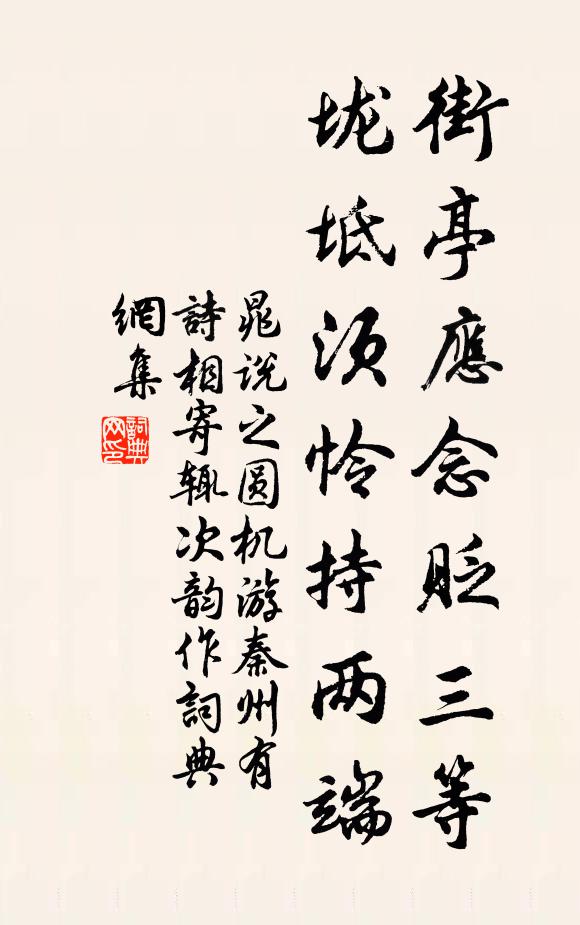 街亭應念貶三等
垅坻须怜持两端
晁说之圆机游秦州有
詩相寄辄次韵作詞典
網集
詞典網印